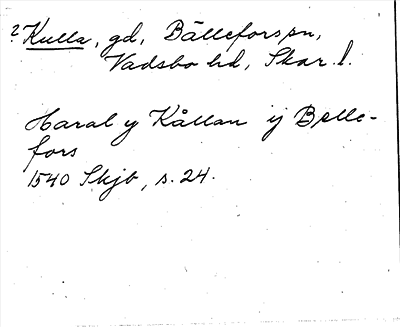 ? Kulla, gd, Bälleforspn,
Vadsbo hd, Skar. l.
Haral y Kållan ij Belle-
fors
1540 Skjb, s. 24.